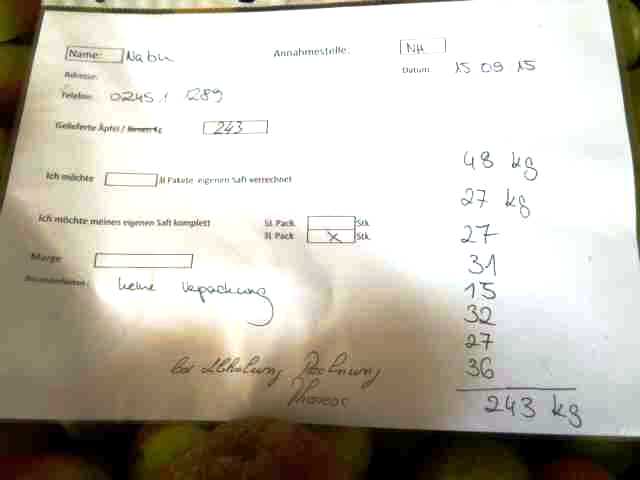 Name: Nabu
Annahmestelle: NH
Adresse:
Datum: 15 09 15
Telefon: 0245 / 1289
Gelieferte Äpfel / Birnen kg 243
Ich möchte 3l Pakete eigenen Saft verrechnet
Ich möchte meinen eigenen Saft komplett 5L Pack Stk
3L Pack X Stk
Marge
Besonderheiten: keine Verpackung
bei Abholung Rechnung
48 kg
27 kg
27
31
15
32
27
36
243 kg